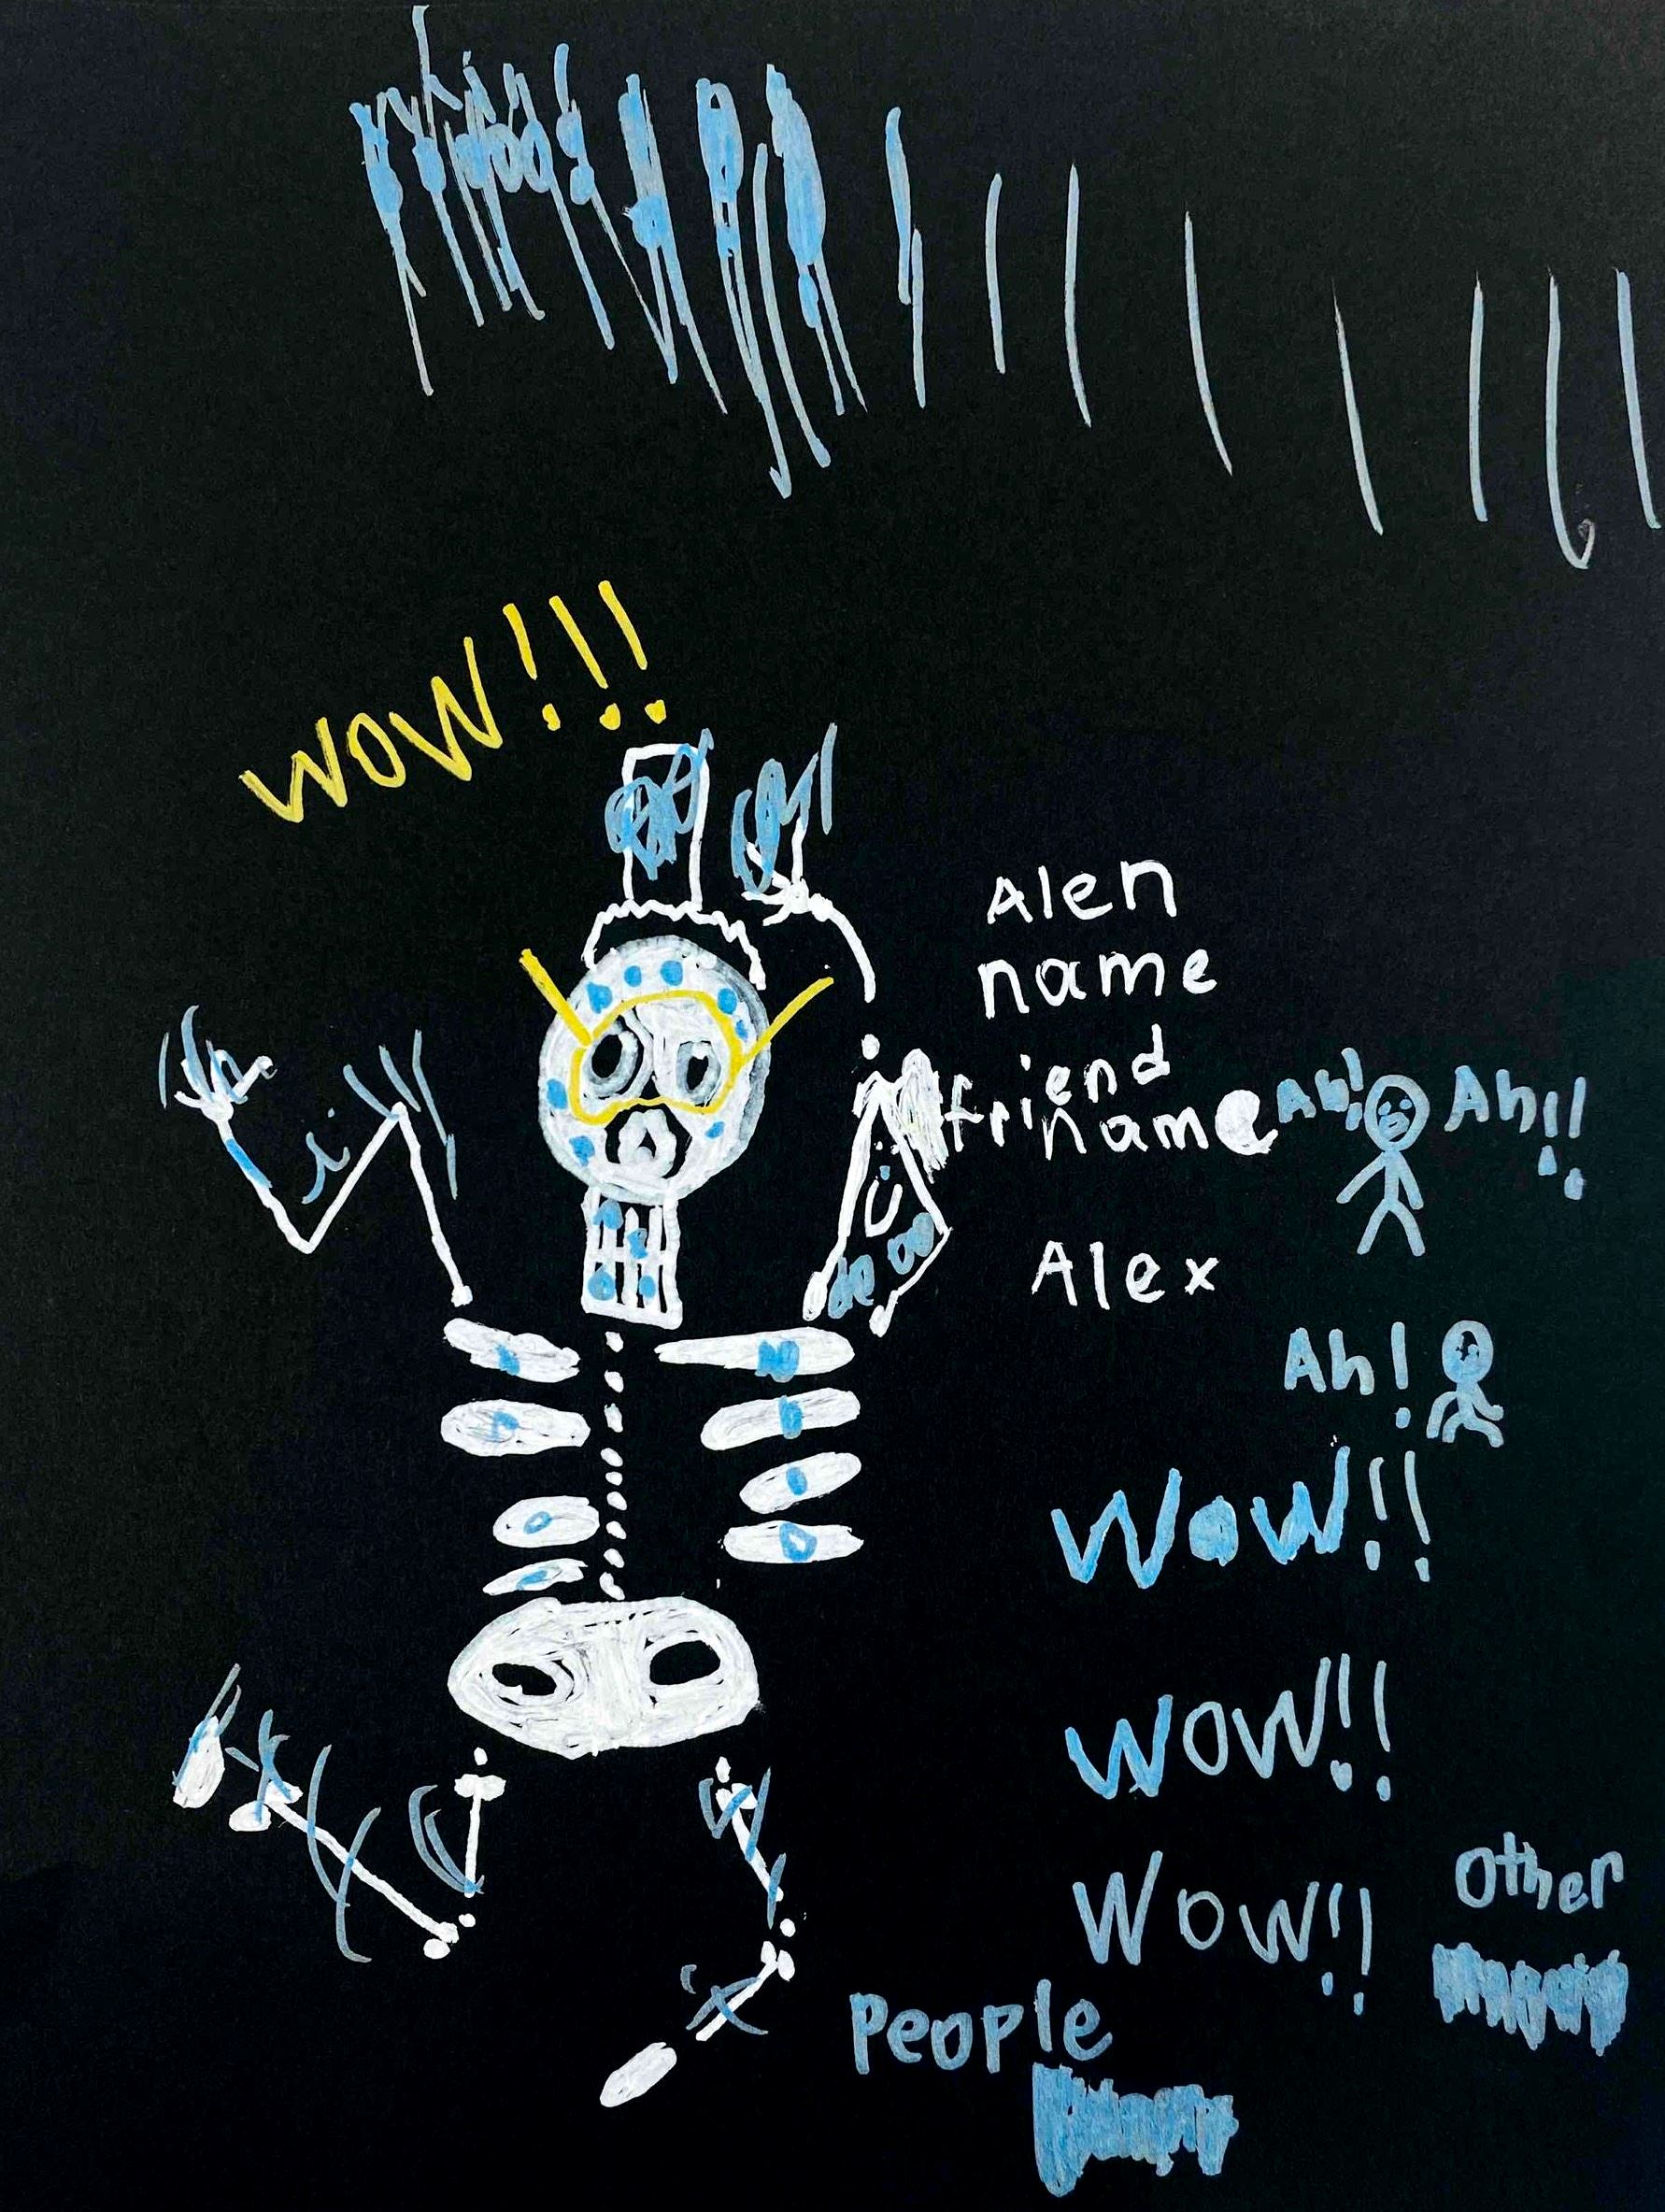 WOW!!!
Alen
name
friend
name
Ah! Ah!!
Alex
Ah!
WOW!!
WOW!!
WOW!!
other
People